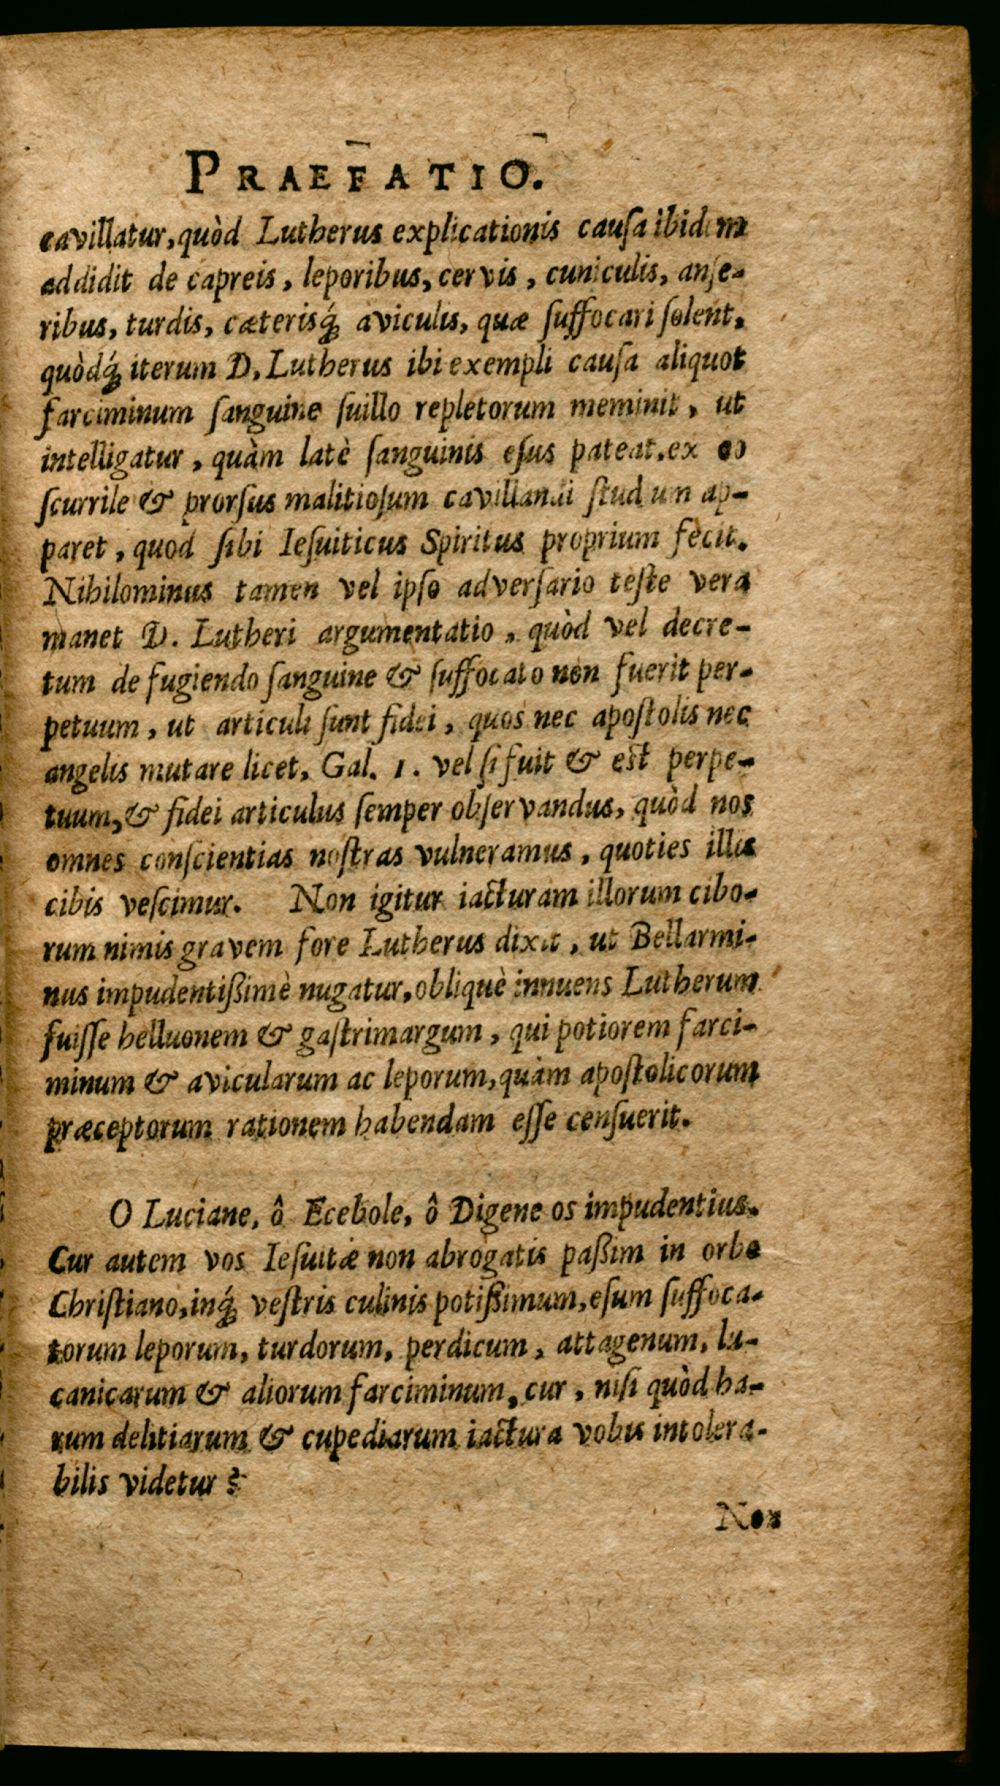 PRAEFATIO.
cavillatur, quòd Lutherus explicationis causa ibidem
addidit de capreis, leporibus, cervis, cuniculis, anse-
ribus, turdis, cæterisq́; aviculis, quæ suffocari solent,
quòdq́; iterum D. Lutherus ibi exempli causa aliquot
farciminum sanguine suillo repletorum meminit, ut
intelligatur, quàm latè sanguinis esus pateat. ex eo
scurrile & prorsus malitiosum cavillandi studium ap-
paret, quod sibi Iesuiticus Spiritus proprium fecit.
Nihilominus tamen vel ipso adversario teste vera
manet D. Lutheri argumentatio, quòd vel decre-
tum de fugiendo sanguine & suffocato non fuerit per-
petuum, ut articuli sunt fidei, quos nec apostolis nec
angelis mutare licet, Gal. 1. vel si fuit & est perpe-
tuum, & fidei articulus semper observandus, quòd nos
omnes conscientias nostras vulneramus, quoties illis
cibis vescimur. Non igitur iacturam illorum cibo-
rum nimis gravem fore Lutherus dixit, ut Bellarmi-
nus impudentißimè nugatur, obliquè innuens Lutherum
fuisse helluonem & gastrimargum, qui potiorem farci-
minum & avicularum ac leporum, quàm apostolicorum
præceptorum rationem habendam esse censuerit.
O Luciane, ô Ecebole, ô Digene os impudentius.
Cur autem vos Iesuitæ non abrogatis paßim in orbe
Christiano, inq́; vestris culinis potißimum, esum suffoca-
torum leporum, turdorum, perdicum, attagenum, lu-
canicarum & aliorum farciminum, cur, nisi quòd ha-
rum delitiarum & cupediarum iactura vobis intolera-
bilis videtur?
Non